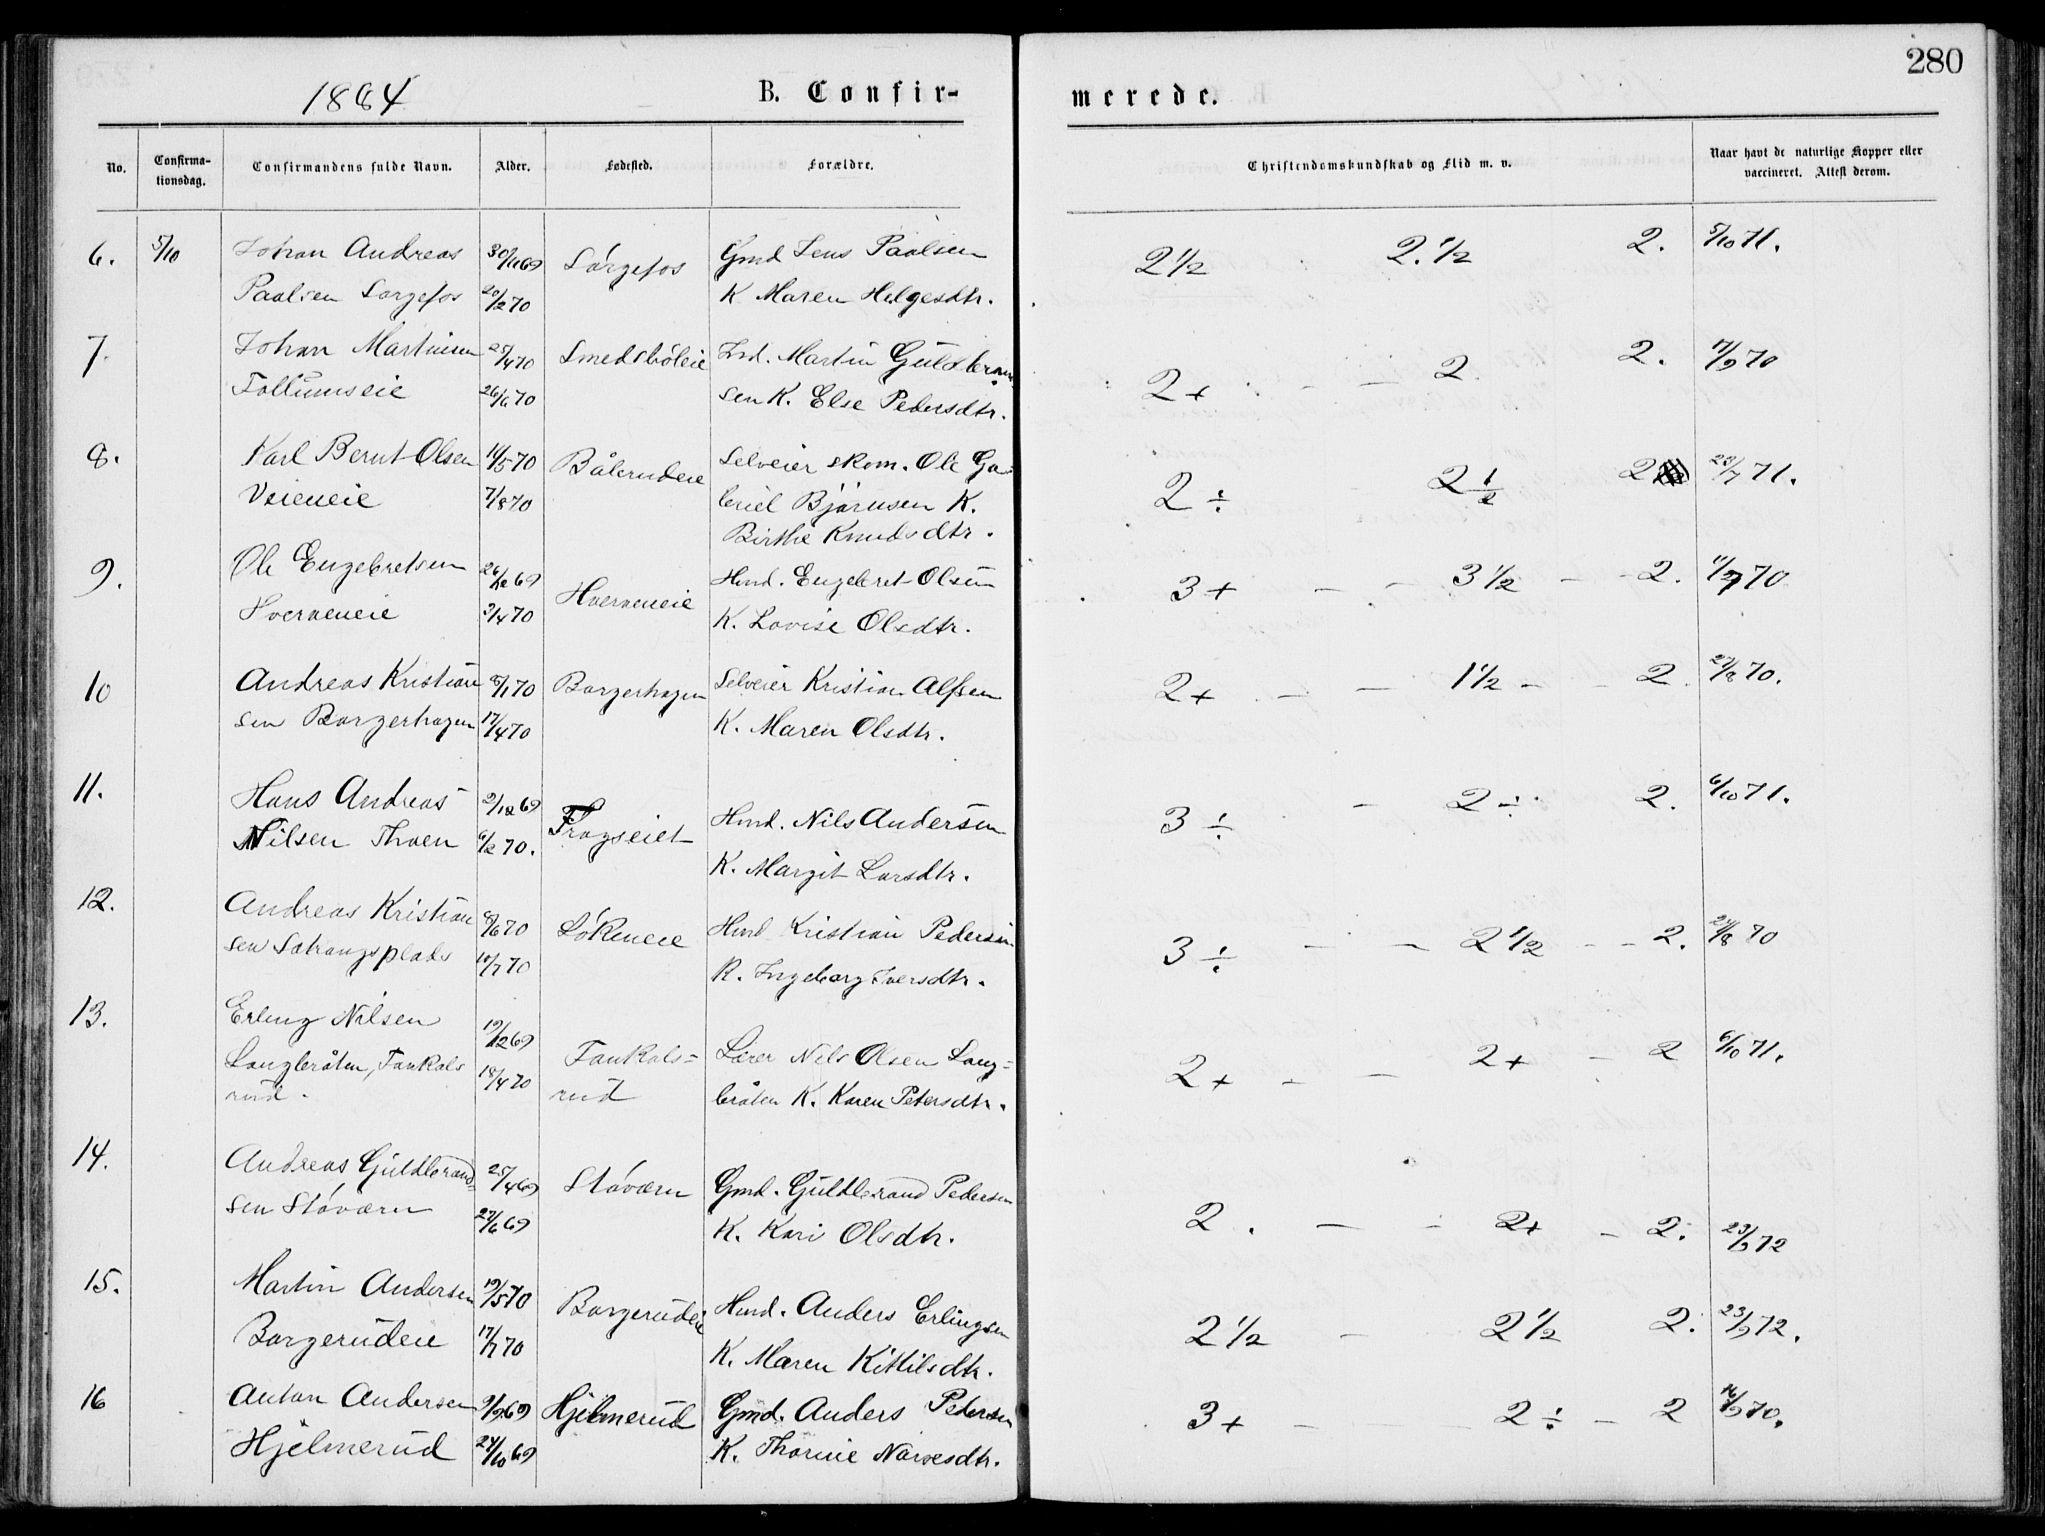 280
1884
B. Confir-
merede.
No.
Confirma-
tionsdag.
Confirmandens fulde Navn.
Alder.
Fødested.
Forældre.
Christendomskundskab og Flid m. v.
Naar havt de naturlige Kopper eller
vaccineret. Attest derom.
6. 5/10 Johan Andreas 30/11 69 Sörgefos Gmd Jens Paalsen 2 1/2 2. 1/2 2. 5/10 71.
Paalsen Sorgefos 20/2 70 K Maren Helgesdtr.
7. Johan Martinsen 25/4 70 Smedsböleie Ind. Martin Guldbran 2+ - - 2. 2. 70
Follumseie 26/6 70 sen K. Else Pedersdtr.
8. Karl Bernt Olsen 11/5 70 Bålerudeie Selveier skom. Ole Ga 2 ÷ - 2 1/2 2 23/7 71.
Veieneie 7/8 70 briel Björnsen K.
Birthe Knudsdtr.
9. Ole Engebretsen 26/12 69 Hverveneie Hmd. Engebret Olsen 3+ - - 3 1/2 - - 2. 70
Hverveneie 3/4 70 K. Lovise Olsdtr.
10 Andreas Kristian 8/1 70 Borgerhagen Selveier Kristian Alfsen 2+ - - 1 1/2 - - 2. 27/8 70.
sen Borgerhagen 17/4 70 K. Maren Olsdtr.
11. Hans Andreas 2/12 69 Fragseiet Hmd. Nils Andersen 3 ÷ - 2 ÷ 2. 6/10 71.
Nilsen Thoen 6/2 70. K. Margit Larsdtr.
12. Andreas Kristian 8/6 70 Lökeneie Hmd Kristian Pedersen 3 ÷ - - 2 1/2 - - 2. 70
sen Sætrangsplads 10/7 70 K. Ingeborg Iversdtr.
13. Erling Nilsen 19/12 69 Tankals= Lærer Nils Olsen Lang= 2+ - - 2+ - 2 6/10 71.
Langbråten, Tankals 18/4 70 rud bråten K. Karen Petersdtr.
rud.
14. Andreas Guldbrand= 25/4 69 Stöværn Gmd. Guldbrand Pedersen 2. - - 2+ - 2. 23/9 72
sen Stöværn 27/6 69 K. Kari Olsdtr.
15. Martin Andersen 19/5 70 Borgerudeie Hmd. Anders Erlingsen 2 1/2 - 2 1/2 2. 23/9 72.
Borgerudeie 17/7 70 K. Maren Kittilsdtr.
16 Anton Andersen 9/9 69 Hjelmerud Gmd. Anders Pedersen 3+ - - 2 ÷ - 2 70.
Hjelmerud 24/10 69 K. Thorine Narvesdtr.